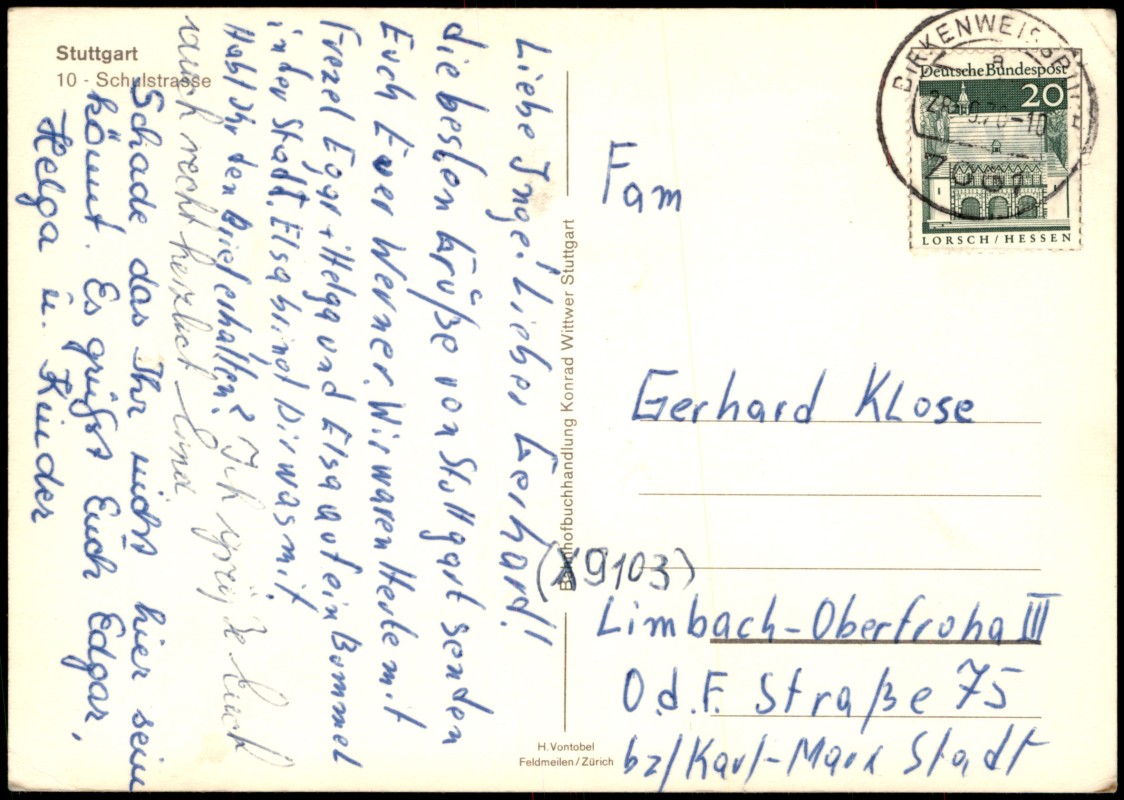 Stuttgart
10 - Schulstrasse
Liebe Inge! Lieber Gerhard!
die besten Grüße von Stuttgart senden
Euch Euer Werner. Wir waren Heute mit
Egar + Helga und Elsa auf ein Bummel
in der Stadt. Elsa bringt Dir was mit
Habt Ihr den Brief erhalten? Ich grüße Euch
auch recht herzlich
Schade das Ihr nicht hier sein
könnt. Es grüßt Euch Edgar,
Helga u. Kinder
Bahnhofbuchhandlung Konrad Wittwer Stuttgart
H. Vontobel
Feldmeilen / Zürich
Deutsche Bundespost
20
LORSCH / HESSEN
BIRKENWEISSBUCH
a
7051
Fam
Gerhard Klose
(X9103)
Limbach-Oberfroha III
O.d.F. Straße 75
bz/Karl-Marx Stadt